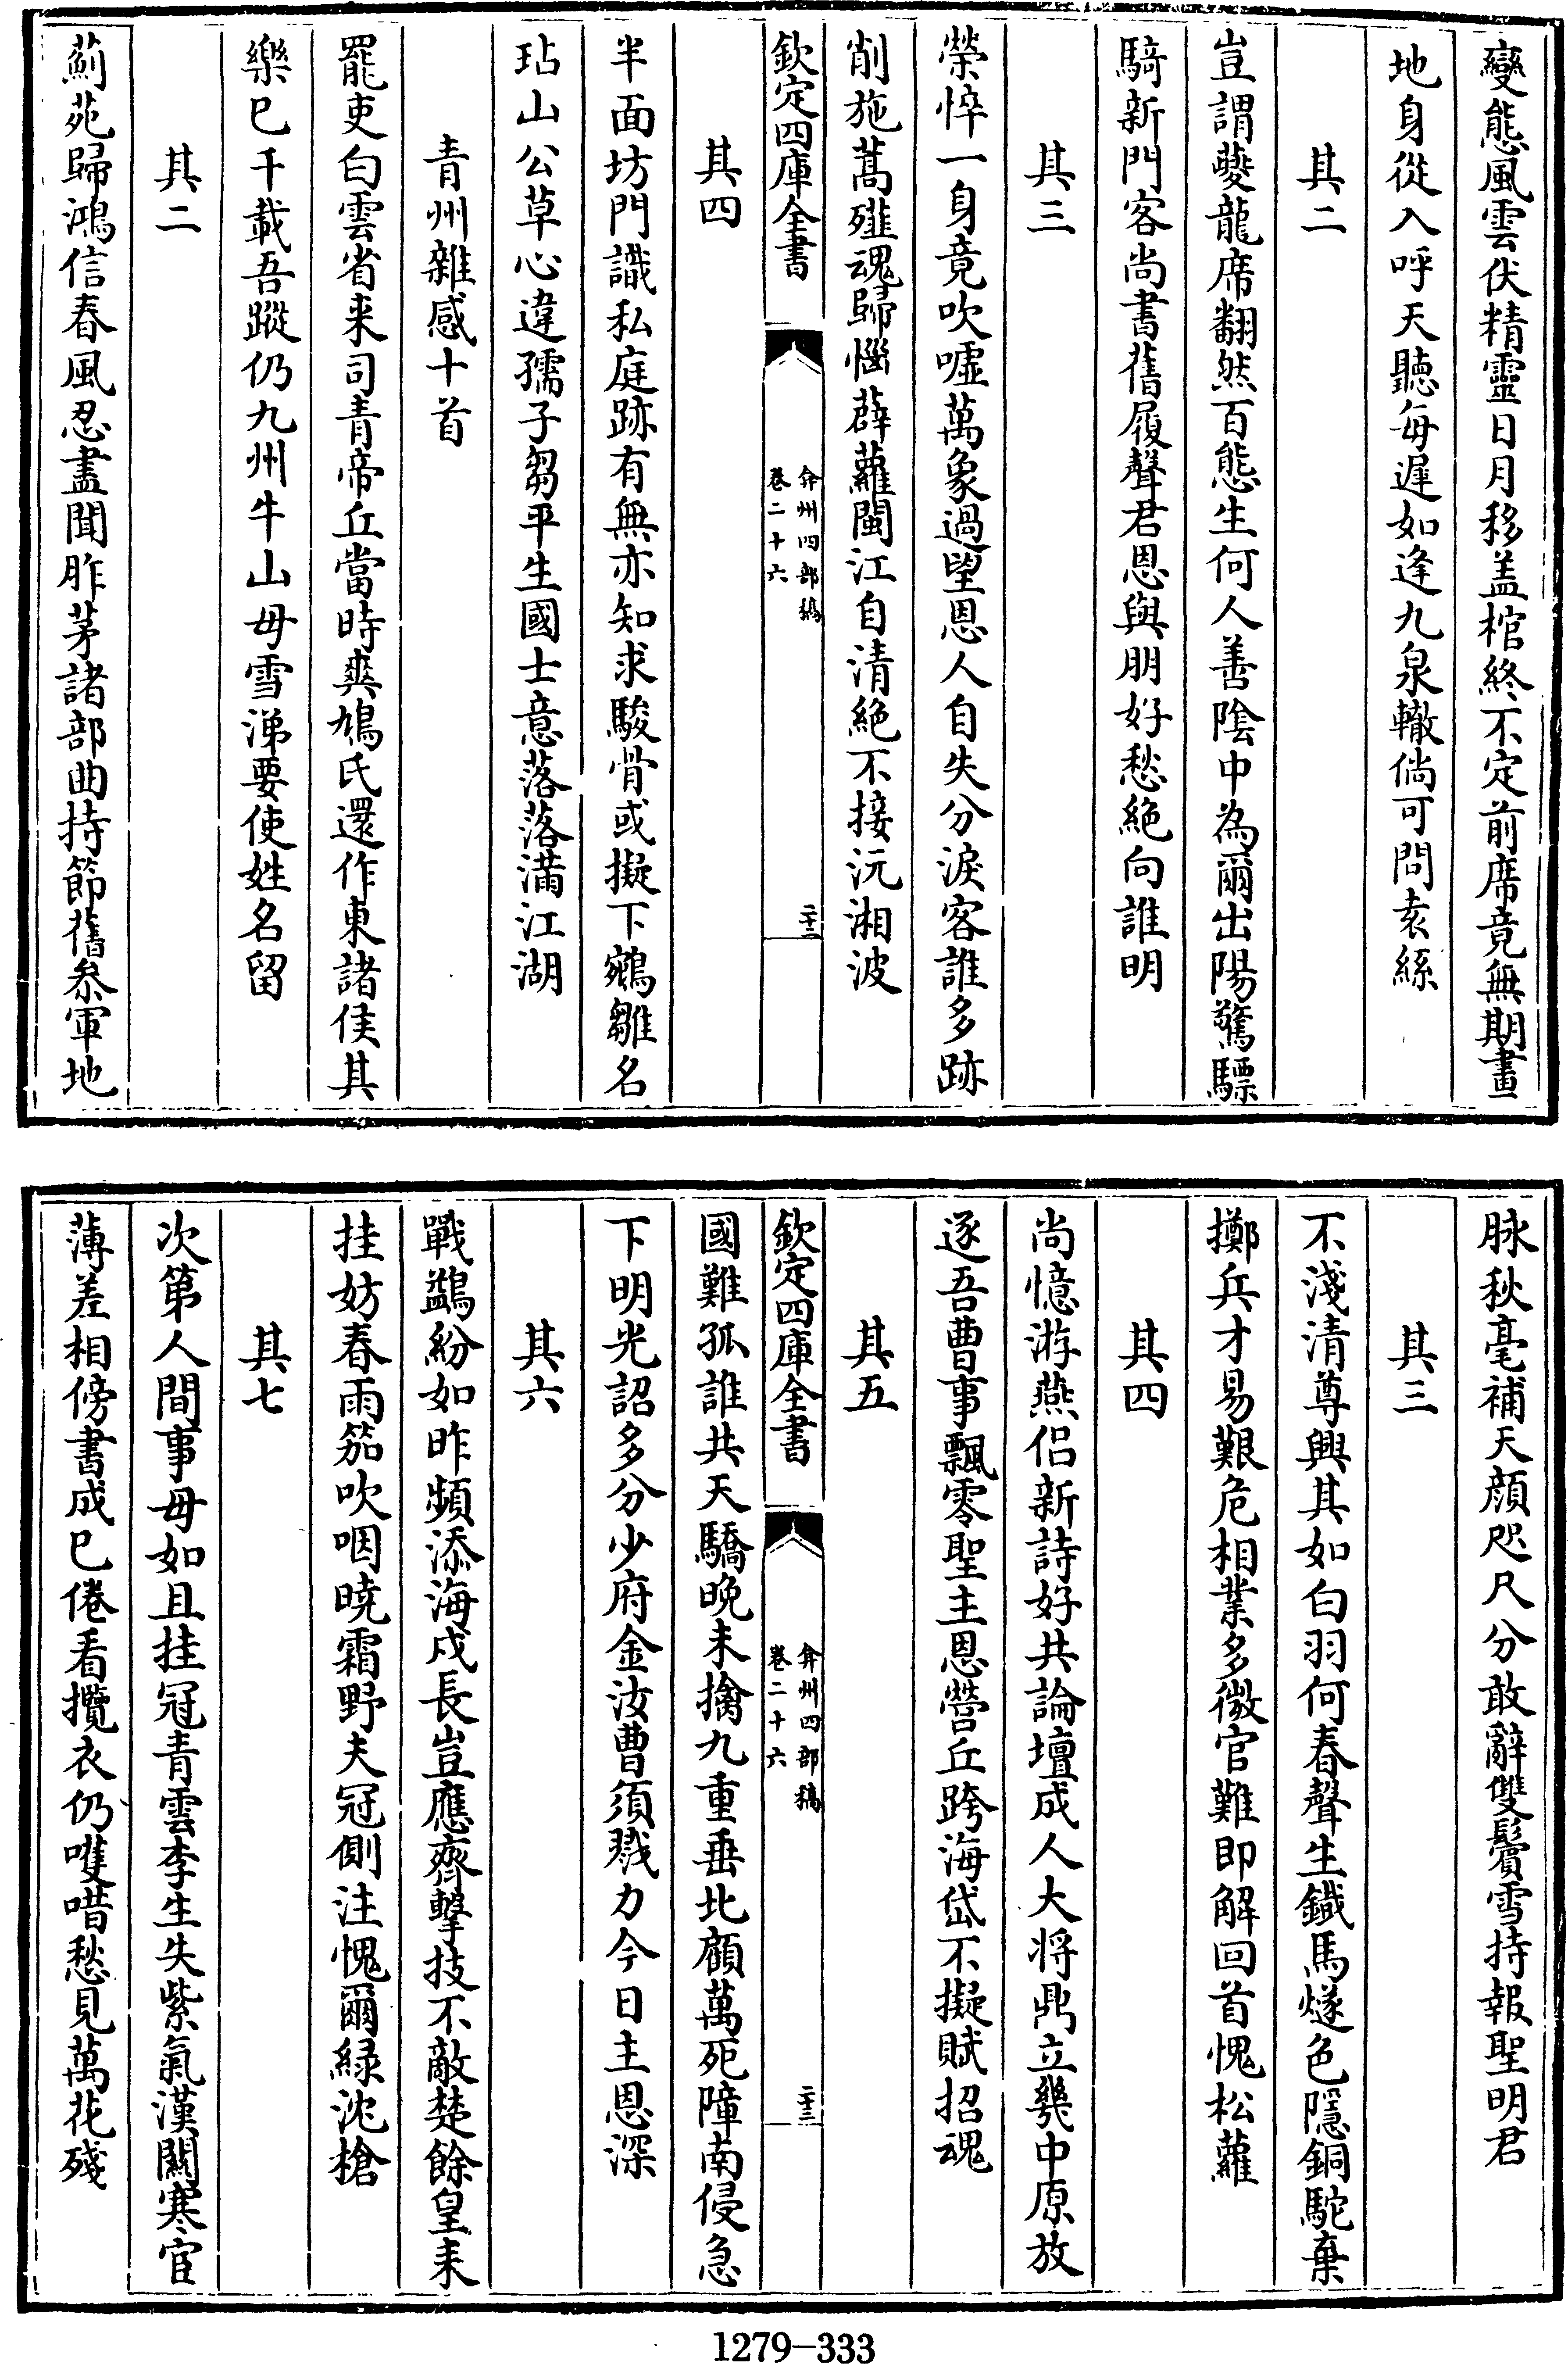 變態風雲伏精靈日月移盖棺終不定前席竟無期畫
地身從入呼天聽每遲如逢九泉轍倘可問袁絲
其二
豈謂夔龍席翻然百態生何人善陰中為爾出陽驚驃
騎新門客尚書舊履聲君恩與朋好愁絶向誰明
其三
榮悴一身竟吹噓萬象過望恩人自失分淚客誰多跡
削施蒿殣魂歸惱薜蘿閩江自清絶不接沅湘波
欽定四庫全書
弇州四部稿
卷二十六
二十二
其四
半面坊門識私庭跡有無亦知求駿骨或擬下鵷雛名
玷山公草心違孺子芻平生國士意落落滿江湖
青州雜感十首
罷吏白雲省来司青帝丘當時爽鳩氏還作東諸侯其
樂已千載吾蹤仍九州牛山毋雪涕要使姓名留
其二
薊苑歸鴻信春風忍盡聞胙茅諸部曲持節舊叅軍地
脉秋毫補天顔咫尺分敢辭雙鬢雪持報聖明君
其三
不淺清尊興其如白羽何春聲生鐵馬燧色隱銅駝棄
擲兵才易艱危相業多微官難即解回首愧松蘿
其四
尚憶游燕侣新詩好共論壇成人大将鼎立幾中原放
逐吾曹事飄零聖主恩營丘跨海岱不擬賦招魂
欽定四庫全書
弇州四部稿
卷二十六
二十三
其五
國難孤誰共天驕晚未擒九重垂北顧萬死障南侵急
下明光詔多分少府金汝曹須戮力今日主恩深
其六
戰鷁紛如昨頻添海戍長豈應齊擊技不敵楚餘皇耒
挂妨春雨笳吹咽曉霜野夫冠側注愧爾緑沈槍
其七
次第人間事毋如且挂冠青雲李生失紫氣漢關寒宦
薄差相傍書成已倦看攬衣仍嘆唶愁見萬花殘
1279-333